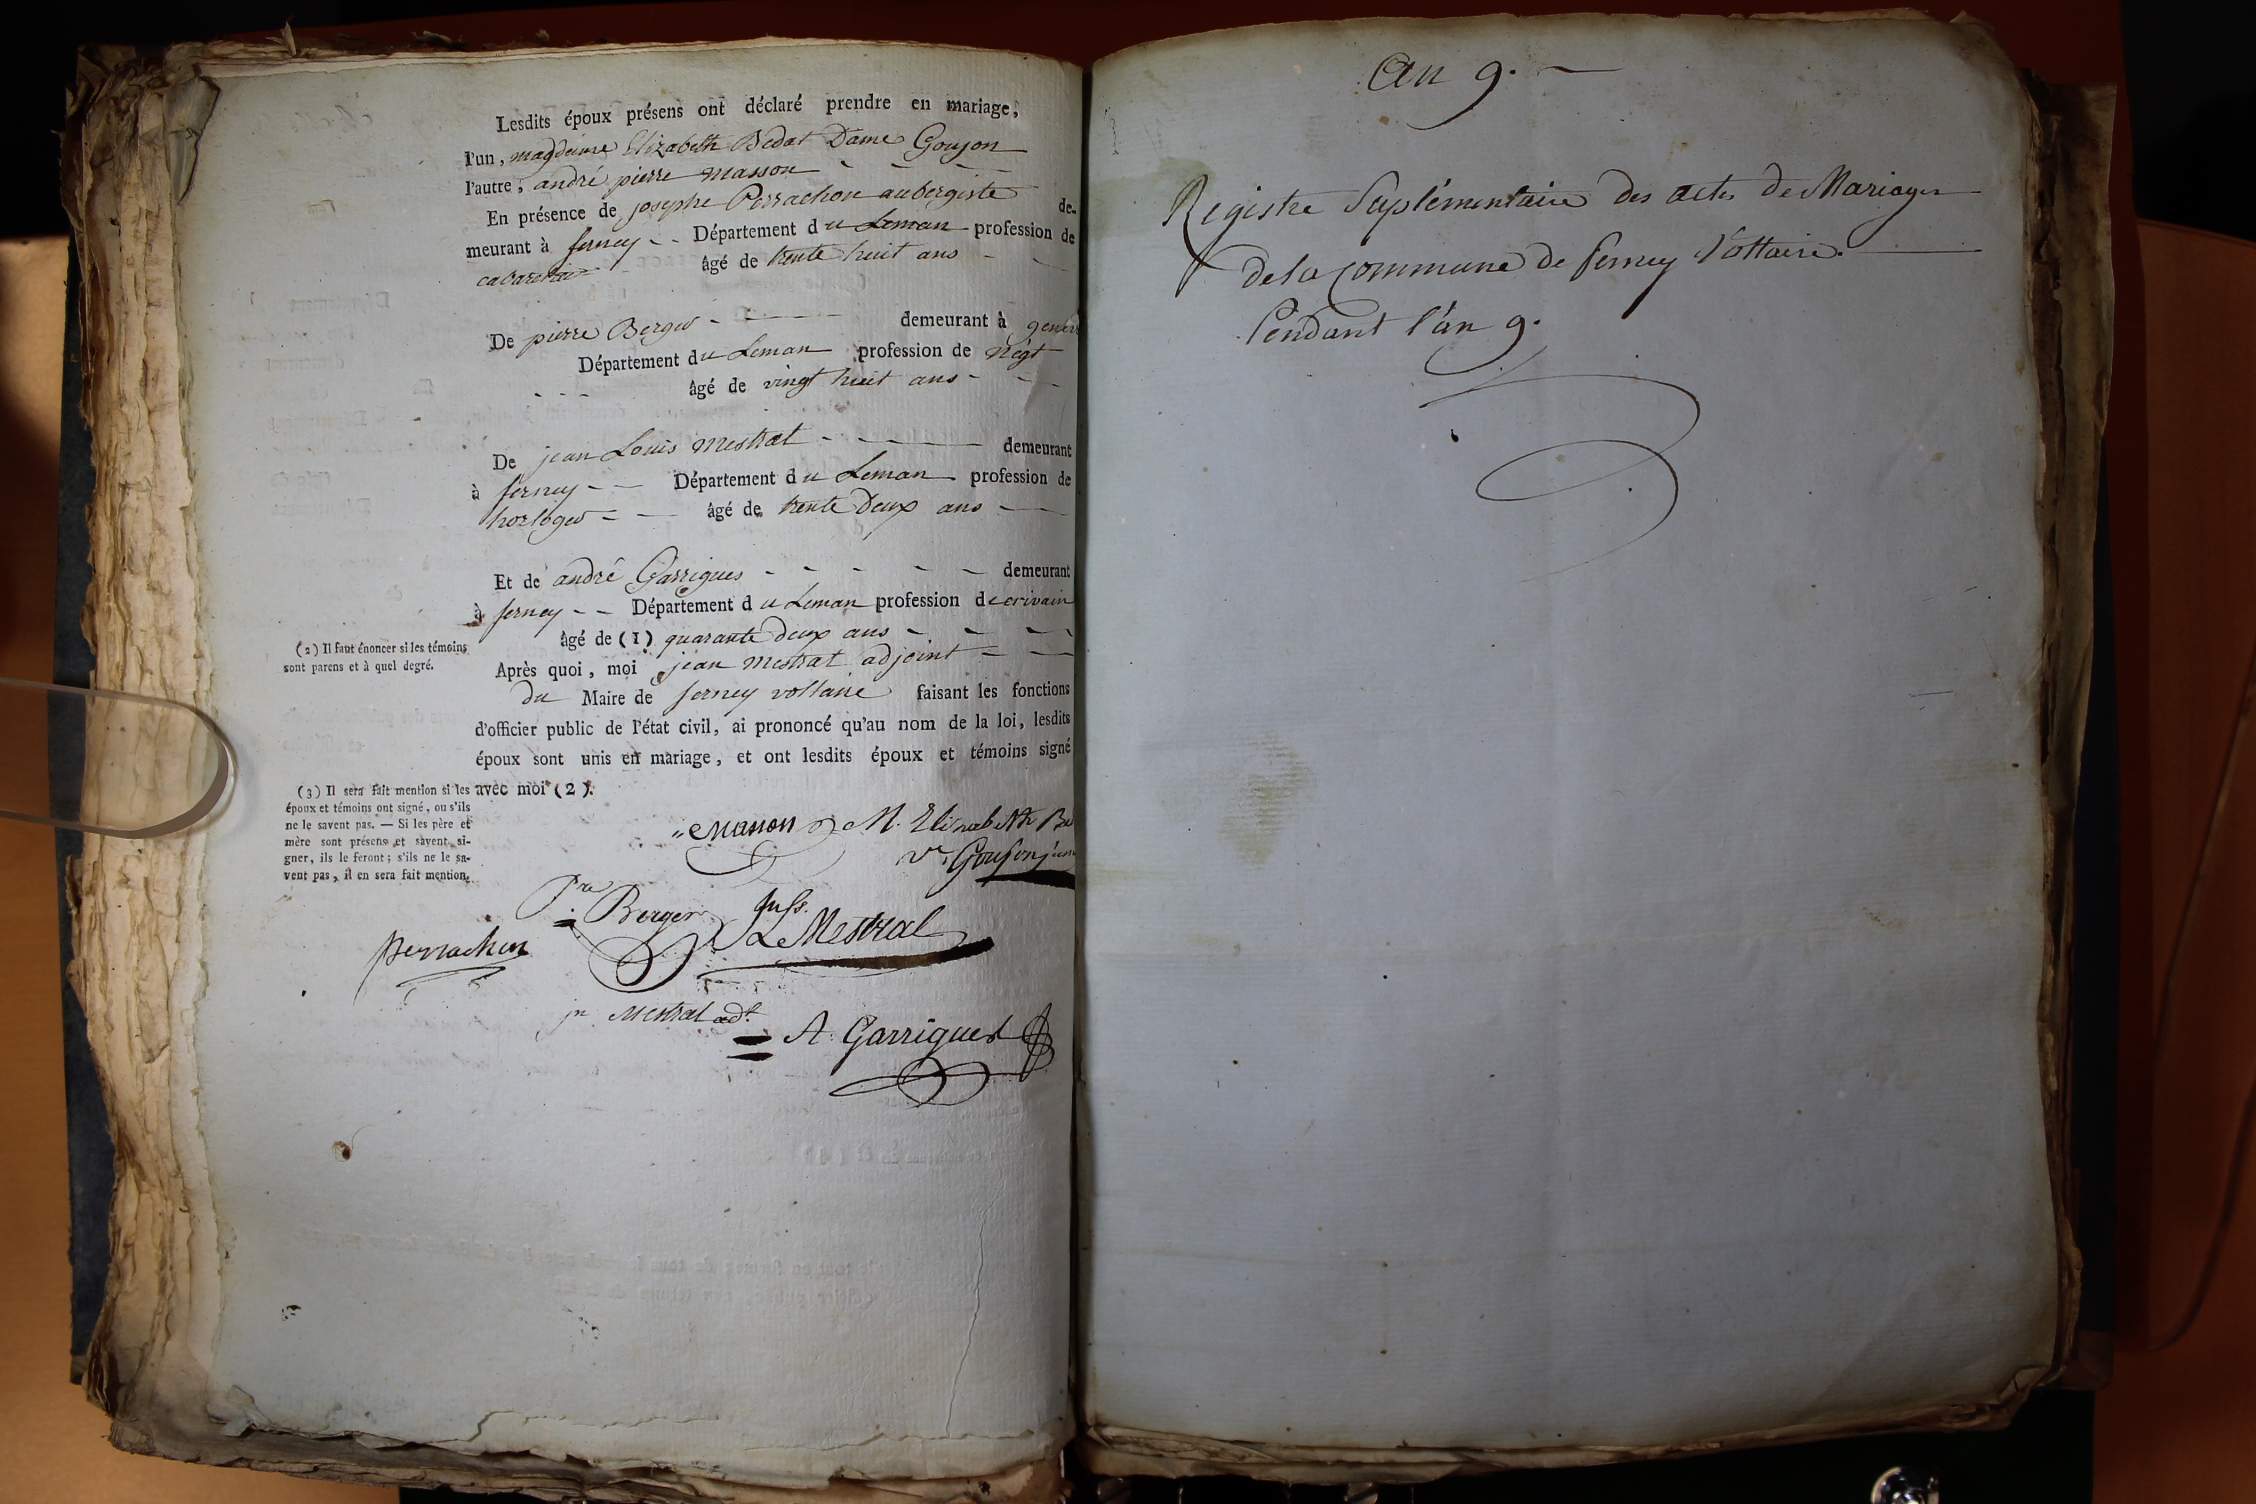 Lesdits époux présens ont déclaré prendre en mariage,
l'un, magdeleine Elizabeth Bedat Dame Goujon
l'autre, andré pierre masson
En présence de josephe Perrachon aubergiste de-
meurant à ferney Département du Leman profession de
cabaretier âgé de trente huit ans
De pierre Berger demeurant à
Département du Leman profession de négt
âgé de vingt huit ans
De jean Louis mestral demeurant
à ferney Département du Leman profession de
horloger âgé de trente Deux ans
Et de andré Garrigues demeurant
à ferney Département du Leman profession decrivain
âgé de (1) quarante deux ans
(2) Il faut énoncer si les témoins
sont parens et à quel degré.
Après quoi, moi jean mestral adjoint
du Maire de ferney voltaire faisant les fonctions
d'officier public de l'état civil, ai prononcé qu'au nom de la loi, lesdits
époux sont unis en mariage, et ont lesdits époux et témoins signé
avec moi (2).
(3) Il sera fait mention si les
époux et témoins ont signé, ou s'ils
ne le savent pas. — Si les père et
mère sont présens et savent si-
gner, ils le feront; s'ils ne le sa-
vent pas, il en sera fait mention.
Masson M. Elizabeth
Ve Goujon
Pre Berger
L Mestral
perrachon
jn Mestral adt
A Garrigues
An 9.
Registre Suplémentaire des actes de Mariages
de la Commune de ferney Voltaire.
Pendant l'an 9.